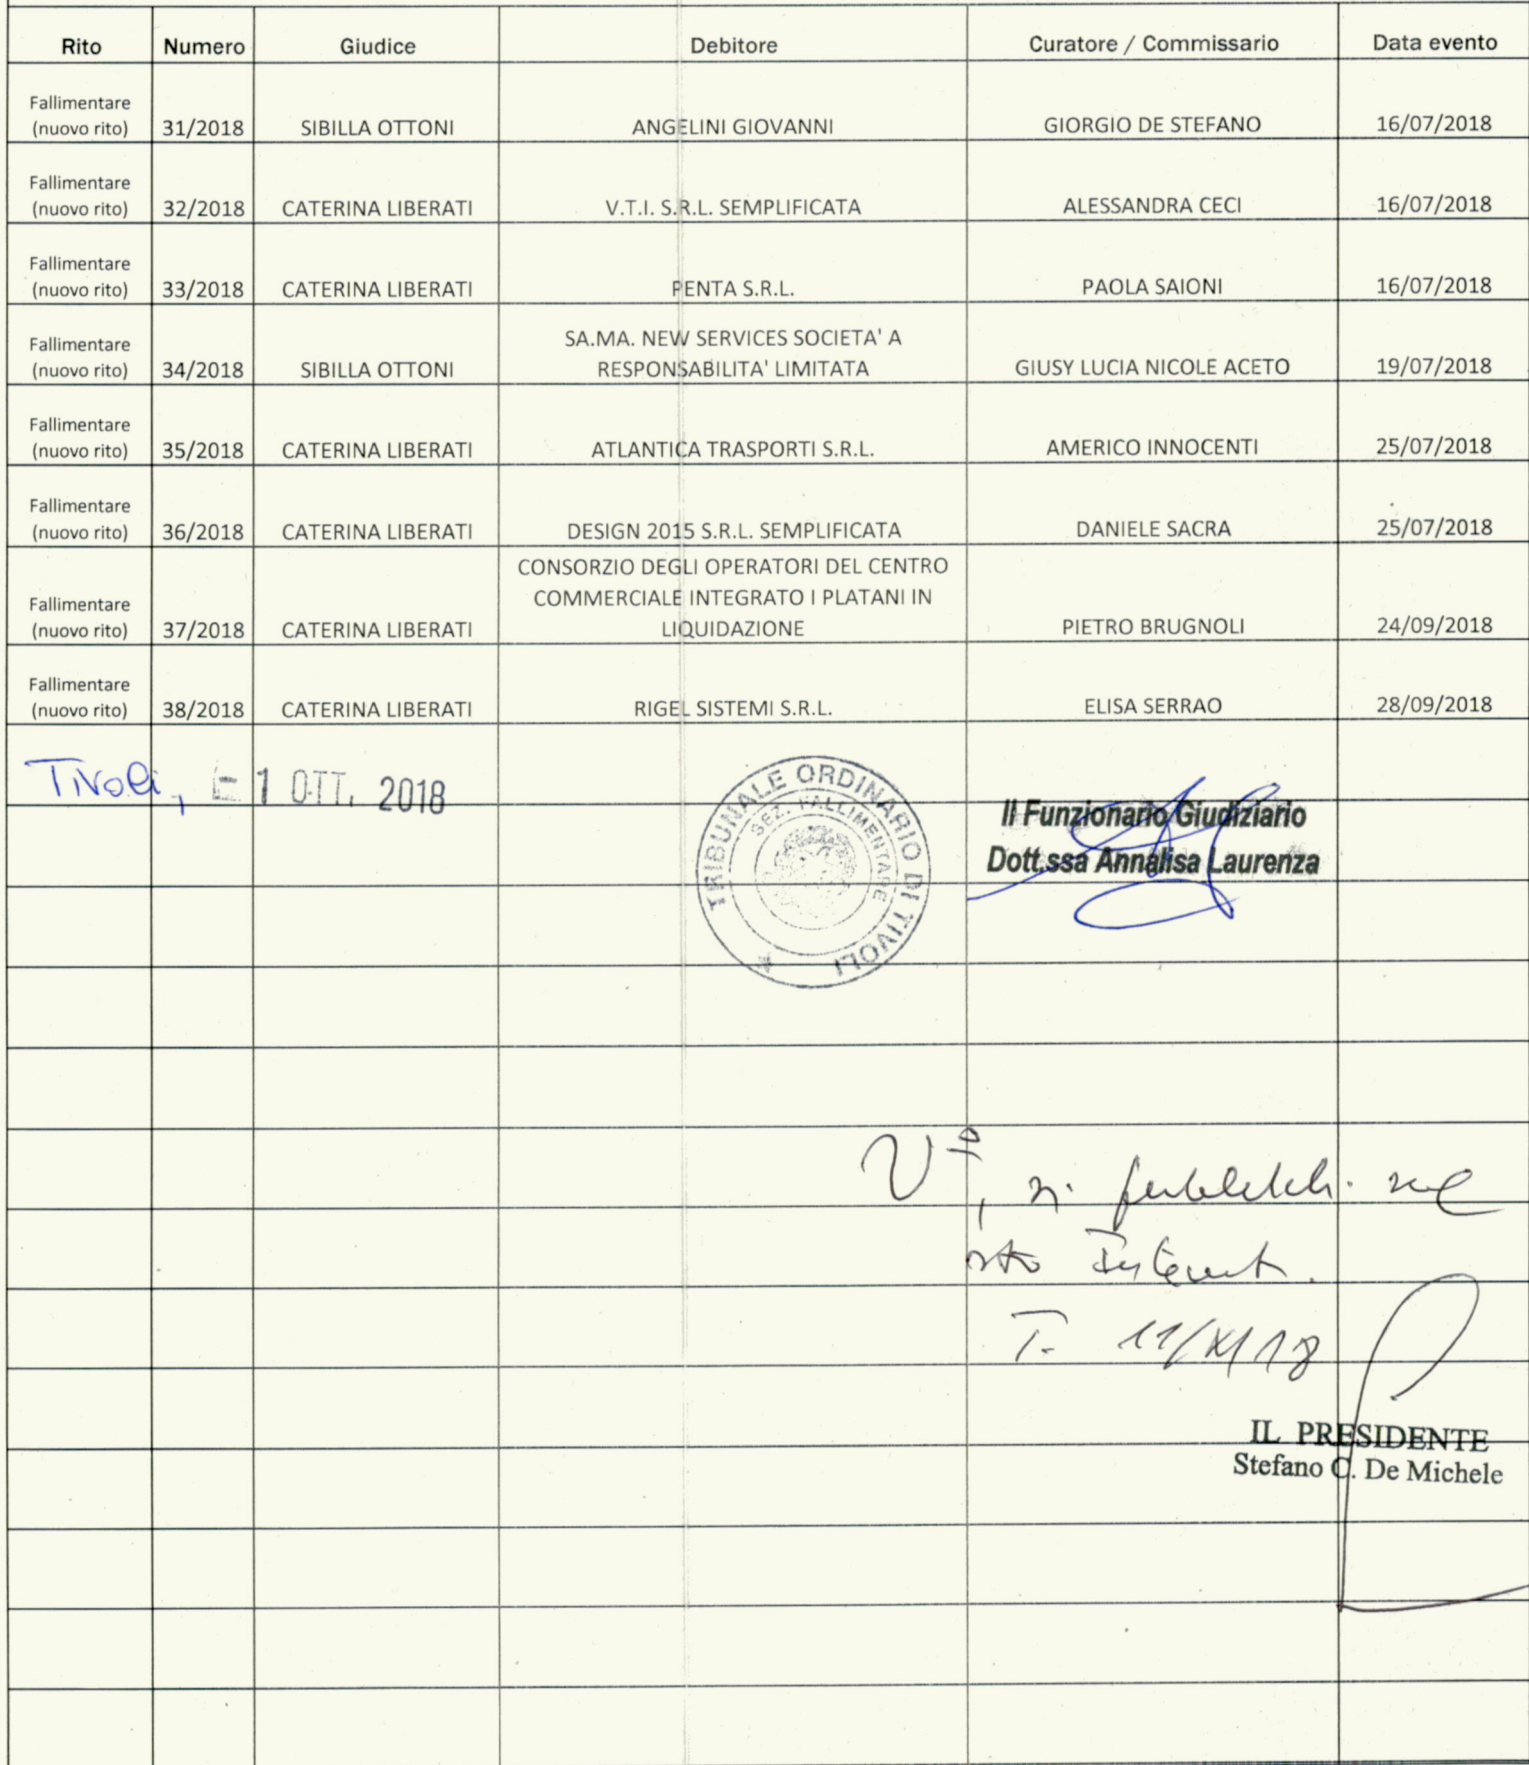 Rito Numero Giudice Debitore Curatore / Commissario Data evento
Fallimentare
(nuovo rito) 31/2018 SIBILLA OTTONI ANGELINI GIOVANNI GIORGIO DE STEFANO 16/07/2018
Fallimentare
(nuovo rito) 32/2018 CATERINA LIBERATI V.T.I. S.R.L. SEMPLIFICATA ALESSANDRA CECI 16/07/2018
Fallimentare
(nuovo rito) 33/2018 CATERINA LIBERATI PENTA S.R.L. PAOLA SAIONI 16/07/2018
Fallimentare SA.MA. NEW SERVICES SOCIETA' A
(nuovo rito) 34/2018 SIBILLA OTTONI RESPONSABILITA' LIMITATA GIUSY LUCIA NICOLE ACETO 19/07/2018
Fallimentare
(nuovo rito) 35/2018 CATERINA LIBERATI ATLANTICA TRASPORTI S.R.L. AMERICO INNOCENTI 25/07/2018
Fallimentare
(nuovo rito) 36/2018 CATERINA LIBERATI DESIGN 2015 S.R.L. SEMPLIFICATA DANIELE SACRA 25/07/2018
CONSORZIO DEGLI OPERATORI DEL CENTRO
Fallimentare COMMERCIALE INTEGRATO I PLATANI IN
(nuovo rito) 37/2018 CATERINA LIBERATI LIQUIDAZIONE PIETRO BRUGNOLI 24/09/2018
Fallimentare
(nuovo rito) 38/2018 CATERINA LIBERATI RIGEL SISTEMI S.R.L. ELISA SERRAO 28/09/2018
Tivoli, 1 OTT. 2018
TRIBUNALE ORDINARIO DI TIVOLI
SEZ. FALLIMENTARE
Il Funzionario Giudiziario
Dott.ssa Annalisa Laurenza
V°, si pubblichi sul
sito Internet.
T. 11/X/18
IL PRESIDENTE
Stefano C. De Michele